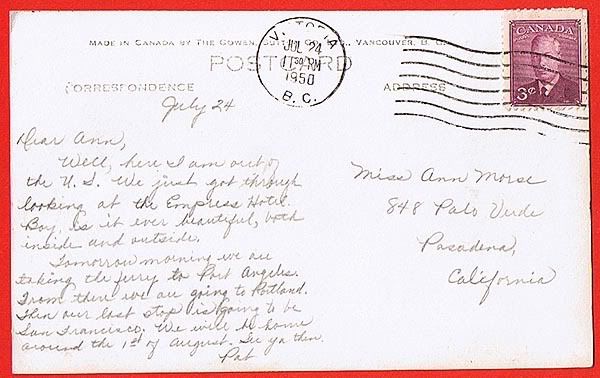 MADE IN CANADA BY THE GOWEN, SUTTON CO. VANCOUVER, B. C.
POSTCARD
CORRESPONDENCE
ADDRESS
VICTORIA
JUL 24
1950
B. C.
CANADA
3¢
July 24
Dear Ann,
Well, here I am out of
the U. S. We just got through
looking at the Empress Hotel.
Boy, is it ever beautiful, both
inside and outside.
Tomorrow morning we are
taking the ferry to Port Angeles.
From there we are going to Portland.
Then our last stop is going to be
San Francisco. We will be home
around the 1st of August. See ya then.
Pat
Miss Ann Morse
848 Palo Verde
Pasadena,
California